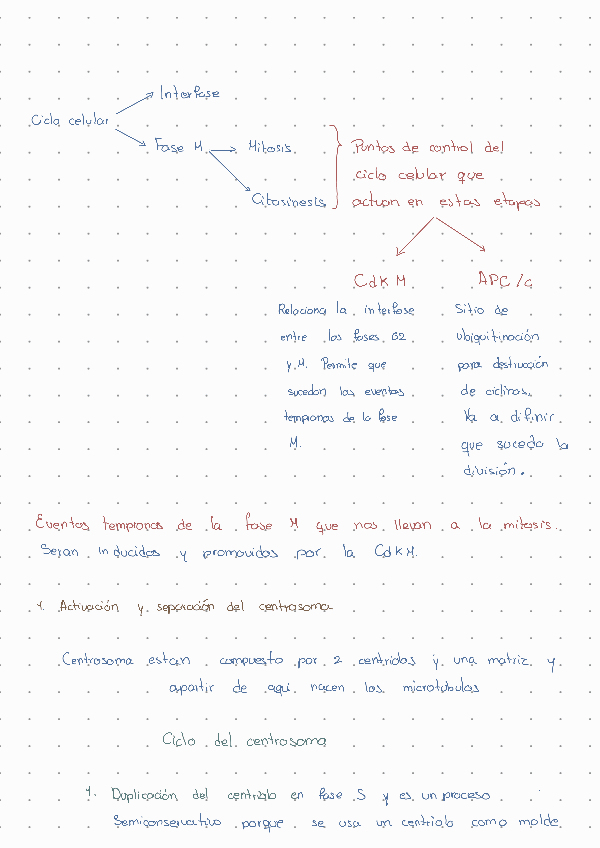 Interfase
Ciclo celular
Fase M
Mitosis
Citosinesis
Puntos de control del
ciclo celular que
actuan en estas etapas
CdK M
APC/c
Relaciona la interfase
entre las fases G2
y M. Permite que
sucedan los eventos
tempranos de la fase
M.
Sitio de
ubiquitinación
para destrucción
de ciclinas.
Va a difinir
que suceda la
división.
Eventos tempranos de la fase M que nos llevan a la mitosis.
Seran inducidos y promovidos por la CdK M.
1. Activación y separación del centrosoma
Centrosoma estan compuesto por 2 centriolos y una matriz y
apartir de aqui nacen los microtubulos
Ciclo del centrosoma
1. Duplicación del centriolo en fase S y es un proceso
Semiconservativo porque se usa un centriolo como molde